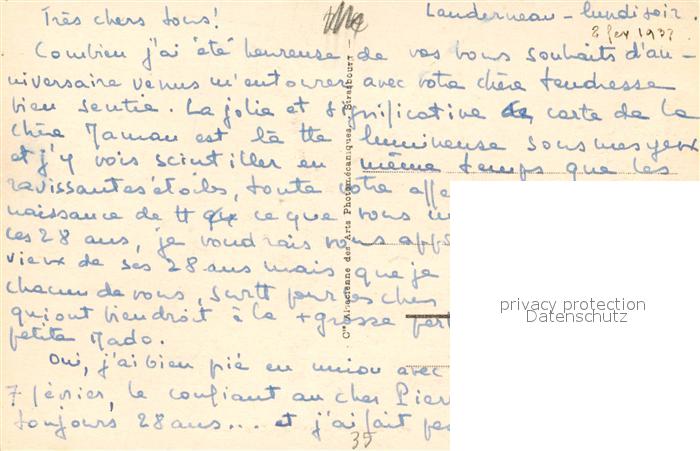 Très chers tous!
Landerneau - lundi soir
8 fev 1937
Combien j'ai été heureuse de vos bons souhaits d'an-
niversaire venus m'entourer avec votre chère tendresse
bien sentie. La jolie et significative carte de la
chère Maman est là tte lumineuse sous mes yeux
et j'y vois scintiller en même temps que les
ravissantes étoiles, toute votre affe
naissance de tt ce que vous m
ces 28 ans, je voudrais vous app
vieux de ses 28 ans mais que je
chacun de vous, surtt pour les chers
qui ont bien droit à la + grosse part
petite Mado.
Oui, j'ai bien prié en union avec
7 février, le confiant au cher Pier
toujours 28 ans... et j'ai fait
35
Cie Alsacienne des Arts Photomécaniques, Strasbourg
privacy protection
Datenschutz